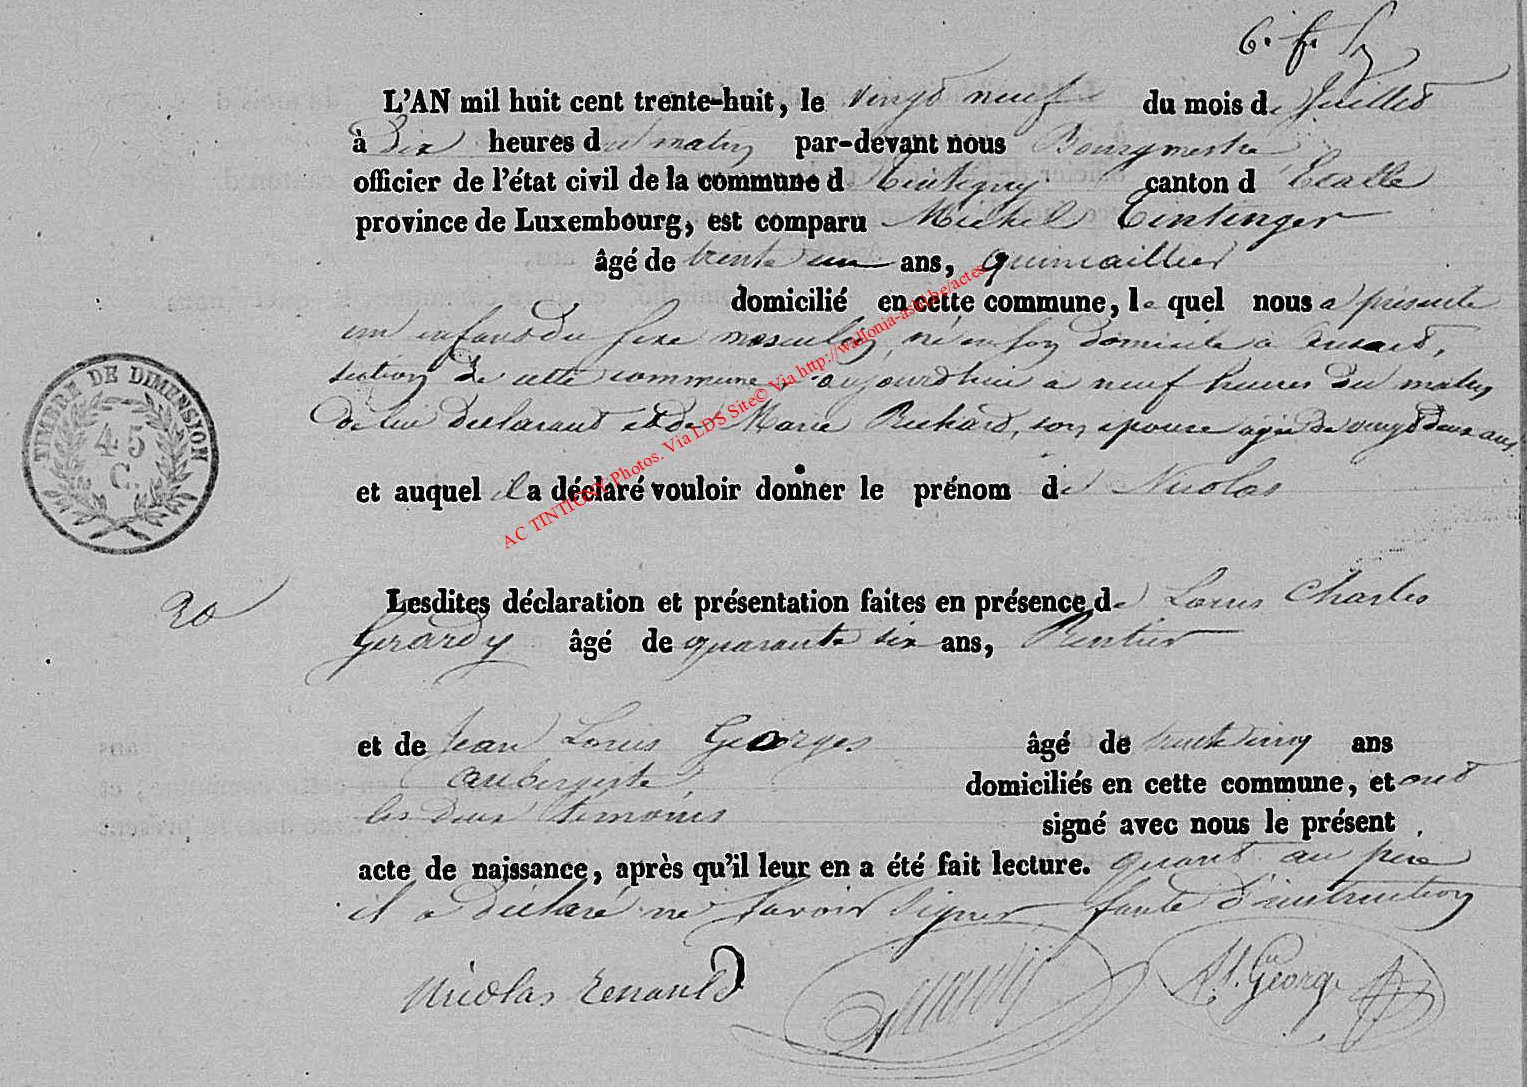 6. f.
L'AN mil huit cent trente-huit, le vingt neuf du mois de Juillet
à Dix heures du matin par-devant nous Bourgmestre
officier de l'état civil de la commune d Tintigny canton d Etalle
province de Luxembourg, est comparu Michel Tintinger
âgé de trente un ans, quincaillier
domicilié en cette commune, le quel nous a présenté
un enfant du sexe masculin, né en son domicile à Ansart,
section de cette commune aujourd'hui a neuf heures du matin
de lui déclarant et de Marie Richard, son épouse agée de vingt deux ans.
et auquel il a déclaré vouloir donner le prénom de Nicolas
TIMBRE DE DIMENSION
45
C.
20
Lesdites déclaration et présentation faites en présence de Louis Charles
Gerardy âgé de quarante six ans, Rentier
et de Jean Louis Georges âgé de trente cinq ans
aubergiste domiciliés en cette commune, et ont
les deux témoins signé avec nous le présent
acte de naissance, après qu'il leur en a été fait lecture. quant au père
il a déclaré ne savoir signer faute d'instruction
Nicolas Renauld Gerardy Georges
AC TINTIGNY Photos. Via LDS Site© Via http://wallonia-asbl.be/actes